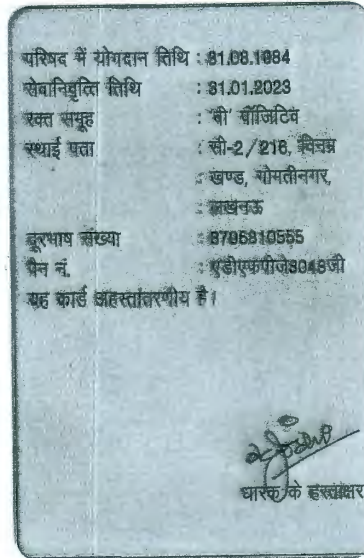 परिषद में योगदान तिथि : 31.08.1984
सेवानिवृत्ति तिथि : 31.01.2023
रक्त समूह : 'बी' पॉजिटिव
स्थाई पता : सी-2/216, विनम्र
खण्ड, गोमतीनगर,
लखनऊ
दूरभाष संख्या : 8795810555
पैन नं. : एडीएफपीजे3048जी
यह कार्ड अहस्तांतरणीय है।
धारक के हस्ताक्षर